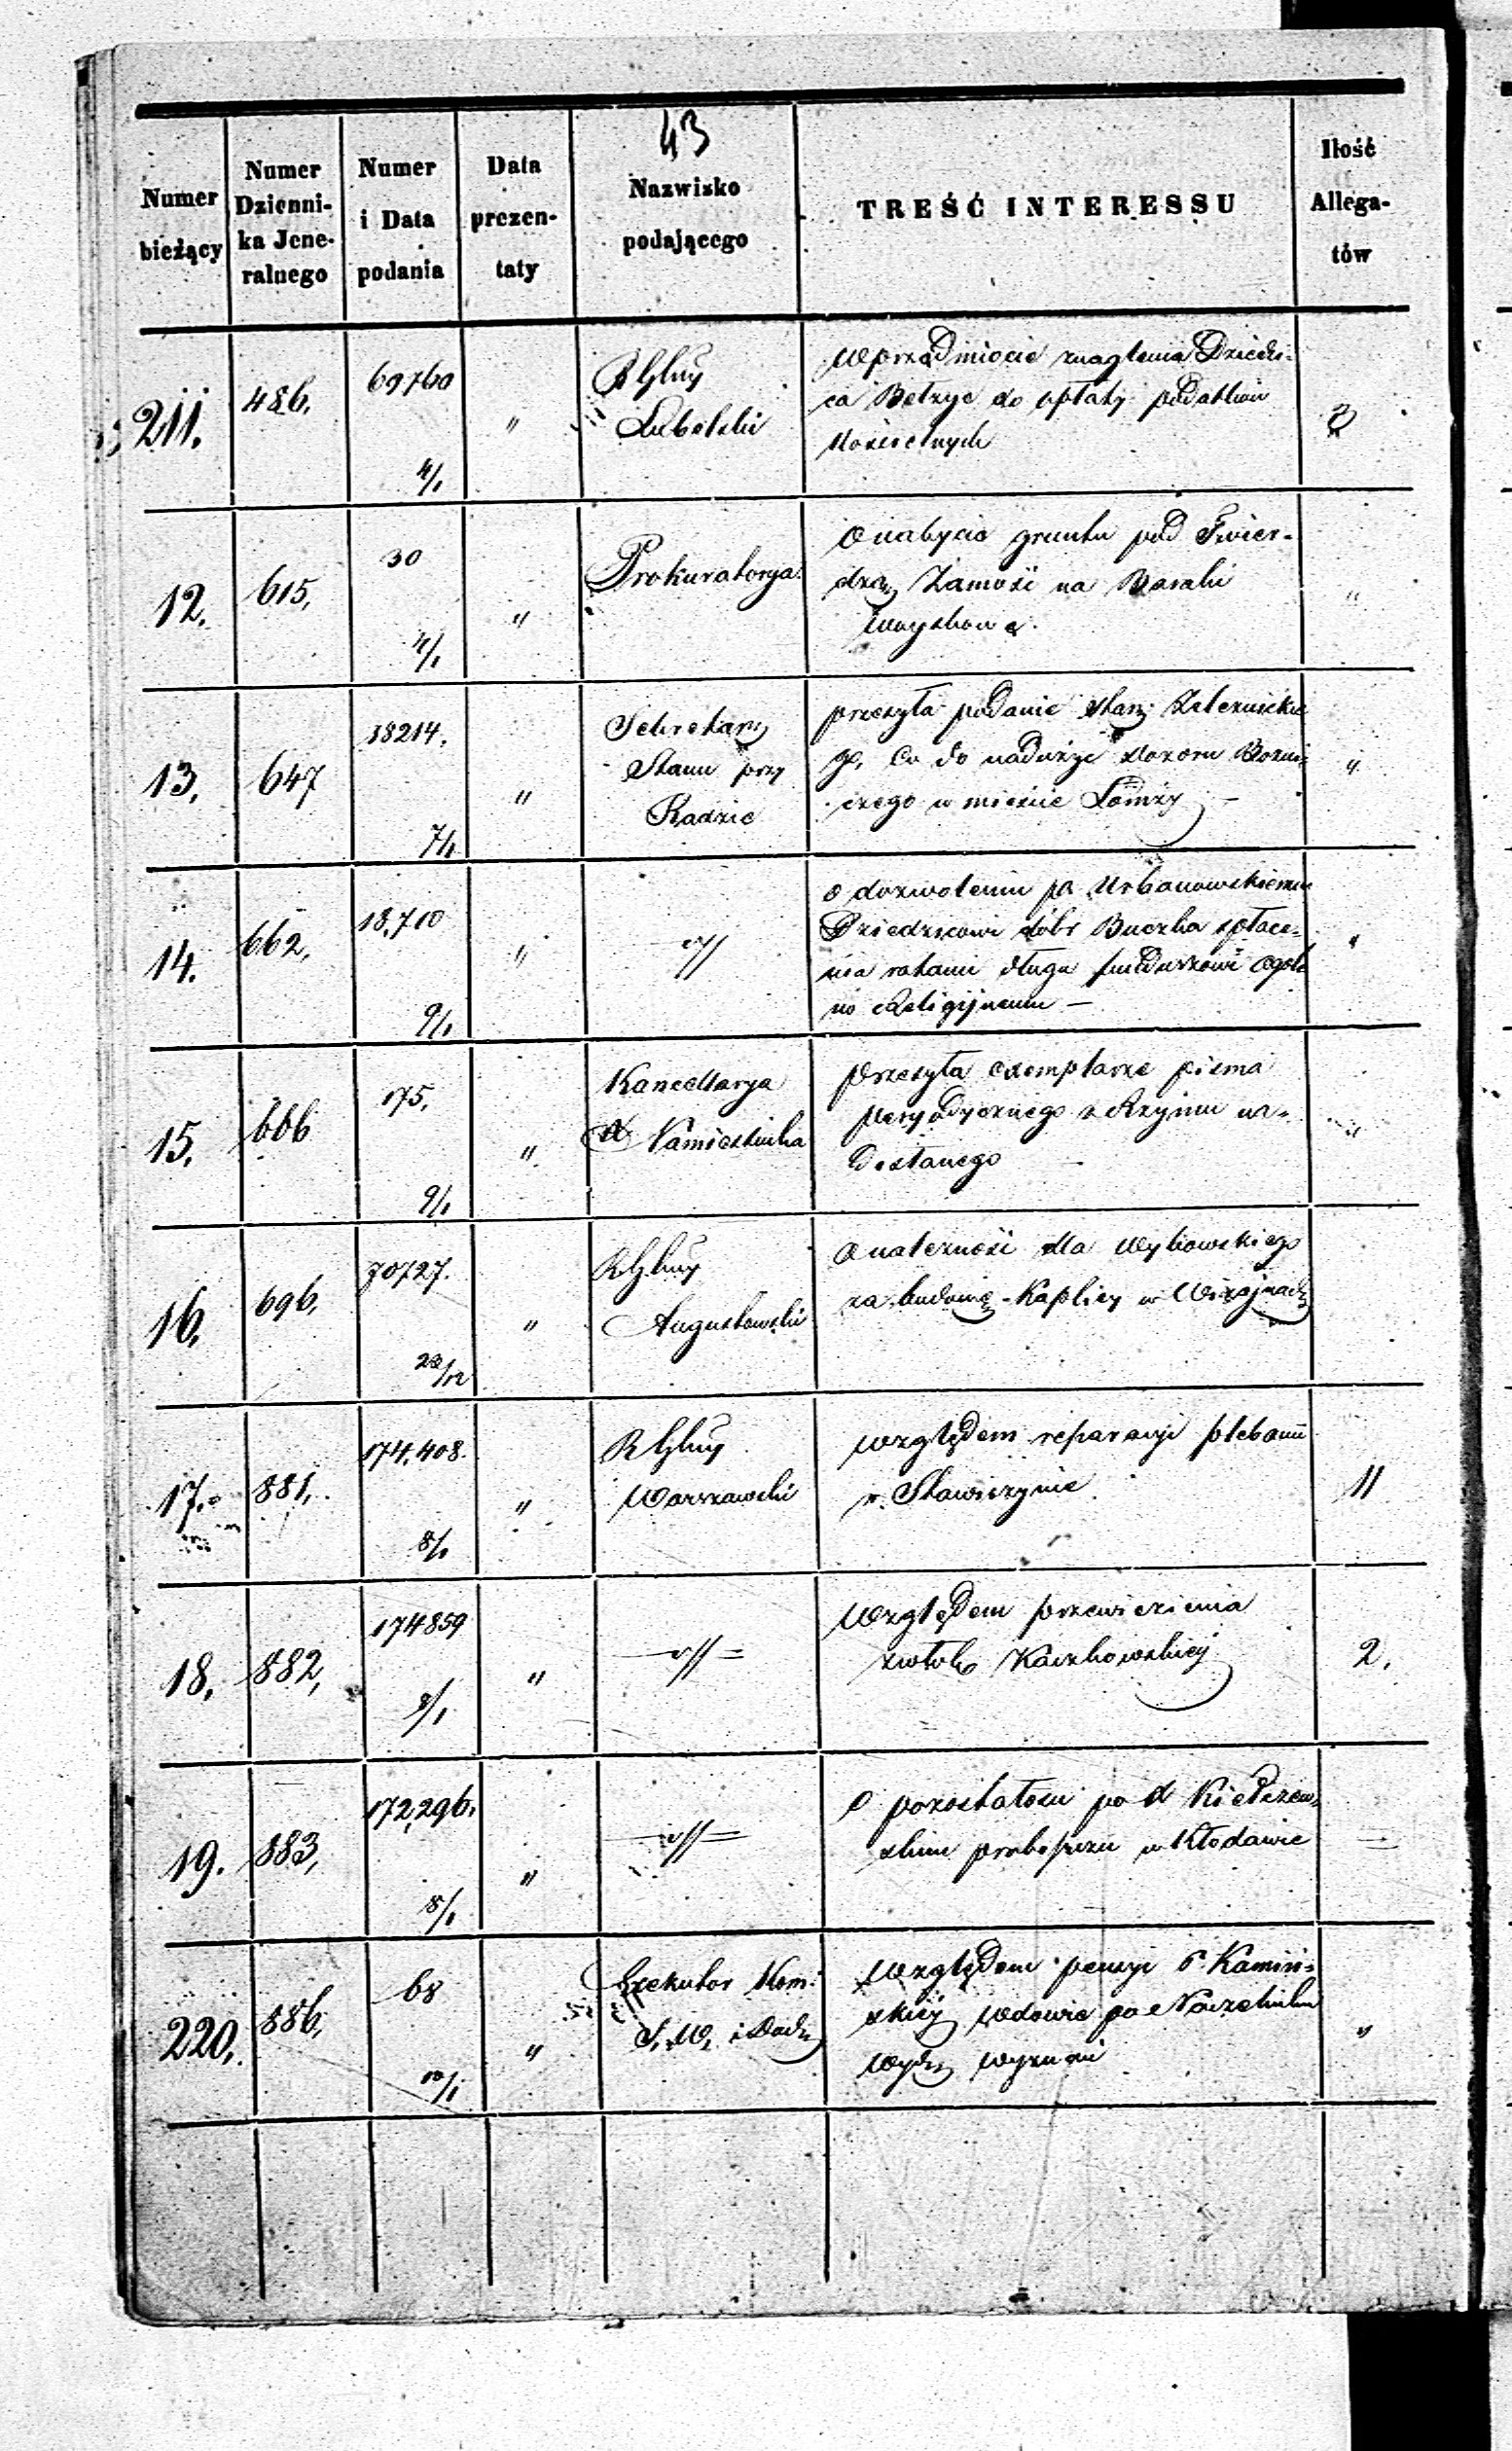 43
Numer bieżący | Numer Dzienni-ka Jene-ralnego | Numer i Data podania | Data prezen-taty | Nazwisko podającego | TREŚĆ INTERESSU | Ilość Allega-tów
211. 486. 69760 4/1 "
Lubelski
w przedmiocie znaglenia Dziedzi-
ca Bełzyc do opłaty podatków
kościelnych
12. 615, 30 4/1 "
Prokuratorya
O nabycie gruntu pod Twier-
dzą Zamość na Baraki
woyskowe.
"
13. 647 18214. 7/1 "
Sekretarz
Stanu przy
Radzie
przesyła podanie Star:
go, co do nadużyć Dozoru Bożni-
czego w mieście Łomży –
"
14. 662, 18,710 9/1 "
"
o dozwoleniu pa Urbanowskiemu
Dziedzicowi dóbr Buczka spłace-
nia ratami długu funduszowi ogól
no Religijnemu –
"
15. 666 175, 9/1 "
Kancellarya
X Namiestnika
przesyła exemplarze pisma
peryodycznego z Rzymu na-
desłanego
"
16. 696. 70727. 23/12 "
Augustowski
O należności dla Wybowskiego
za budowę Kaplicy w Wiżajnach
17. 881, 174,408. 8/1 "
Warszawski
względem reparacyi plebanii
w Stawiszynie
11
18. 882, 174859 8/1 "
"
Względem przewiezienia
zwłok Kaczkowskiej
2.
19. 883, 172,296. 8/1 "
"
O pozostałości po X Kiełczew-
skim proboszczu w Kłodawie
220. 886, 68 10/1 "
Exekutor Kom:
S. W. i Duch:
względem pensyi P Kamiń-
skiej wdowie po Naczelniku
Wydz: wyznań
"